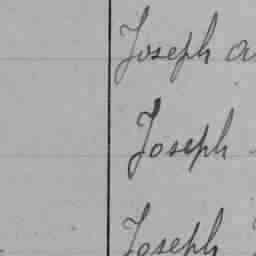 Joseph a
Joseph
Joseph